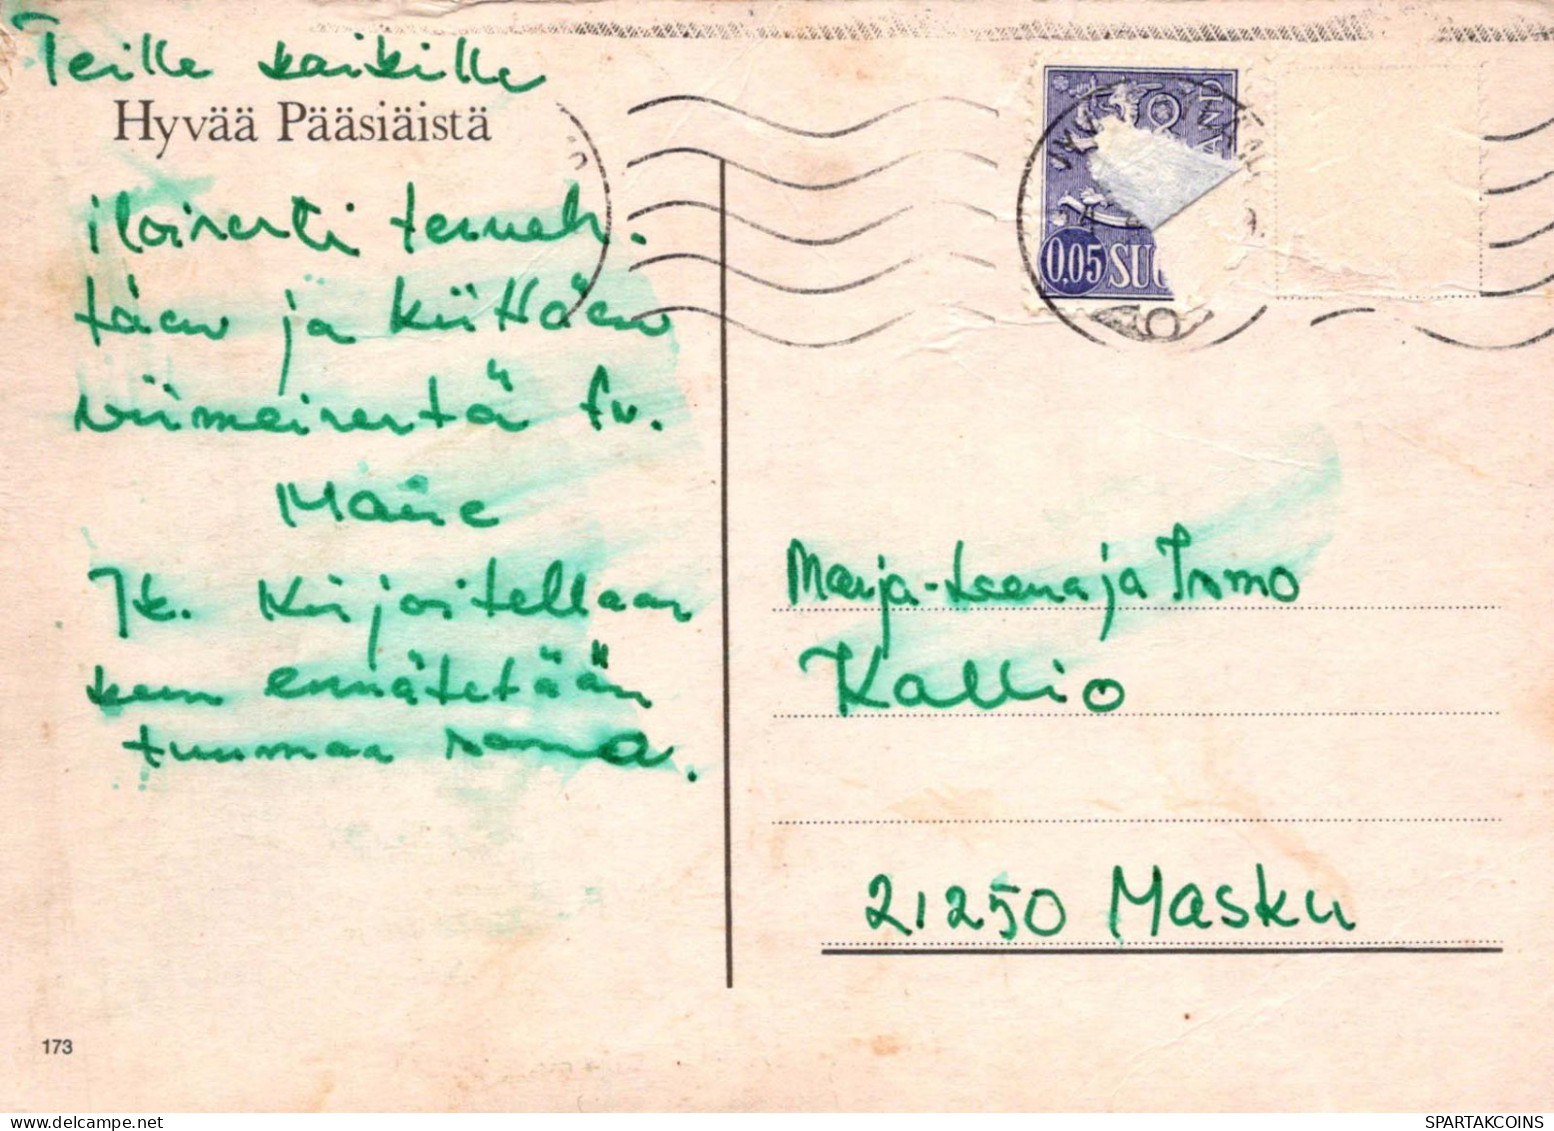 Teille kaikille
Hyvää Pääsiäistä
iloisesti terveh-
täen ja kiittäen
viimeisestä tv.
Maire
Jk. Kirjoitellaan
kun ennätetään
tuumaa sama.
0,05 SUO
Marja-Leena ja Immo
Kallio
21250 Masku
173
SPARTAKCOINS.COM